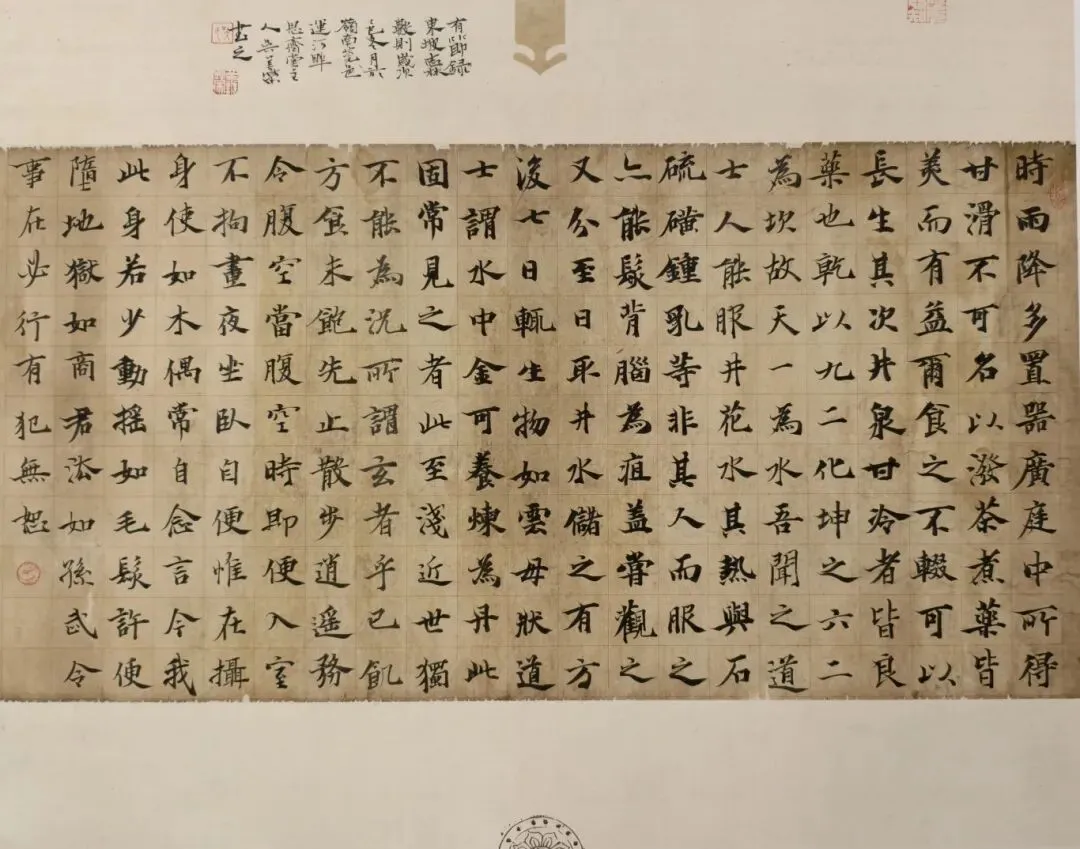 時雨降多置器廣庭中所得
甘滑不可名以潑茶煮藥皆
美而有益爾食之不輟可以
長生其次井泉甘冷者皆良
藥也乾以九二化坤之六二
為坎故天一為水吾聞之道
士人能服井花水其熱與石
硫磺鍾乳等非其人而服之
亦能髮背腦為疽盖嘗觀之
又分至日取井水儲之有方
後七日輒生物如雲母狀道
士謂水中金可養煉為丹此
固常見之者此至淺近世獨
不能為況所謂玄者乎已飢
方食未飽先止散步逍遥務
令腹空當腹空時即便入室
不拘晝夜坐臥自便惟在攝
身使如木偶常自念言今我
此身若少動摇如毛髮許便
墮地獄如商君法如孫武令
事在必行有犯無恕
右節録
東坡志林
數則歲次
冬月於
嶺南莞邑
運河畔
思齋堂主
人
書之